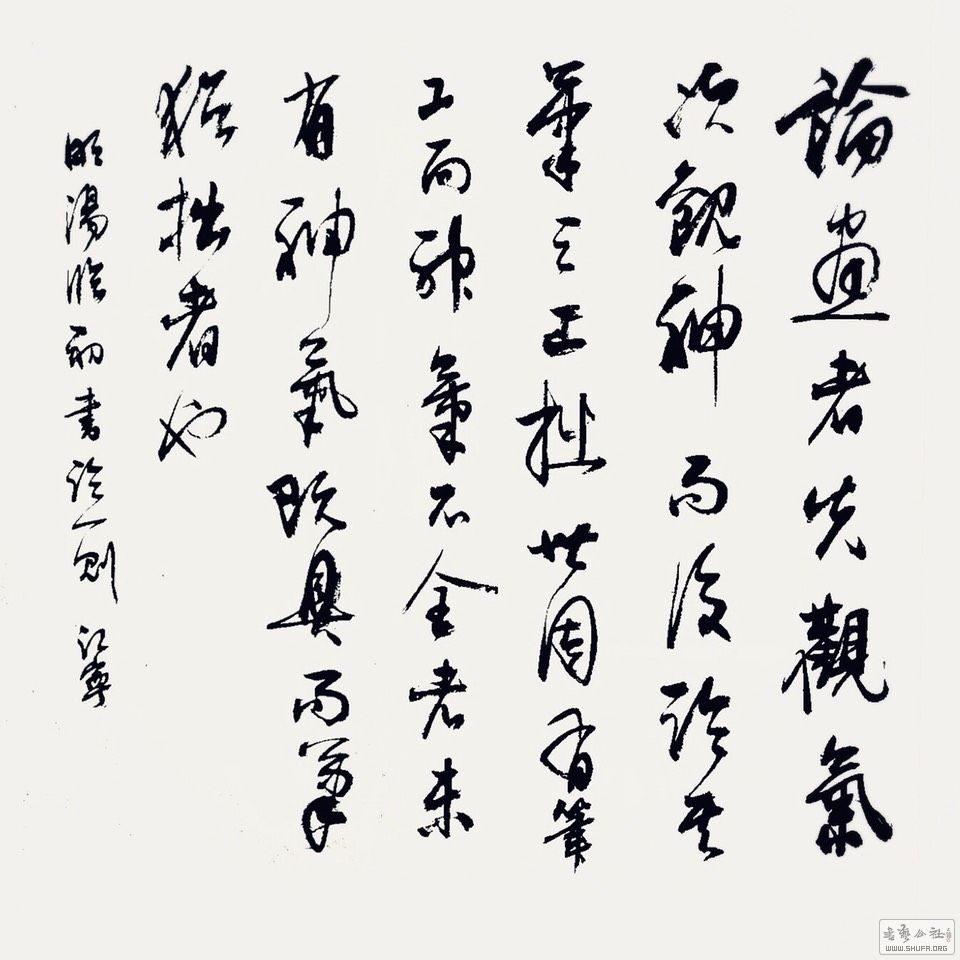 論畫者先觀氣
次觀神而後論其
筆之工拙世固有筆
工而神氣不全者未
有神氣既具而筆
猶拙者也
明湯臨初書論一則
書藝公社
WWW.SHUFA.ORG